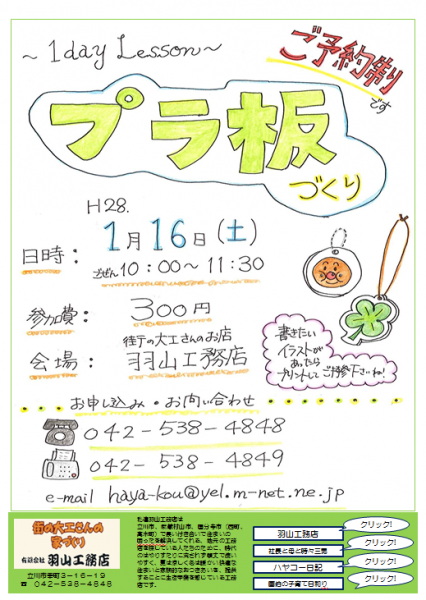 ～1day Lesson～
ご予約制
です
プラ板
づくり
H28.
日時：1月16日（土）
ごぜん10：00～11：30
参加費：300円
街の大工さんのお店
会場：羽山工務店
書きたい
イラストが
あったら
プリントして
ご持参下さいね！
お申し込み・お問い合わせ
042－538－4848
042－538－4849
e-mail haya-kou@yel.m-net.ne.jp
街の大工さんの
家づくり
有限会社 羽山工務店
立川市幸町3－16－19
☎ 042－538－4848
羽山工務店
社長と母と時々三男
ハヤコー日記
クリック！
クリック！
クリック！
クリック！